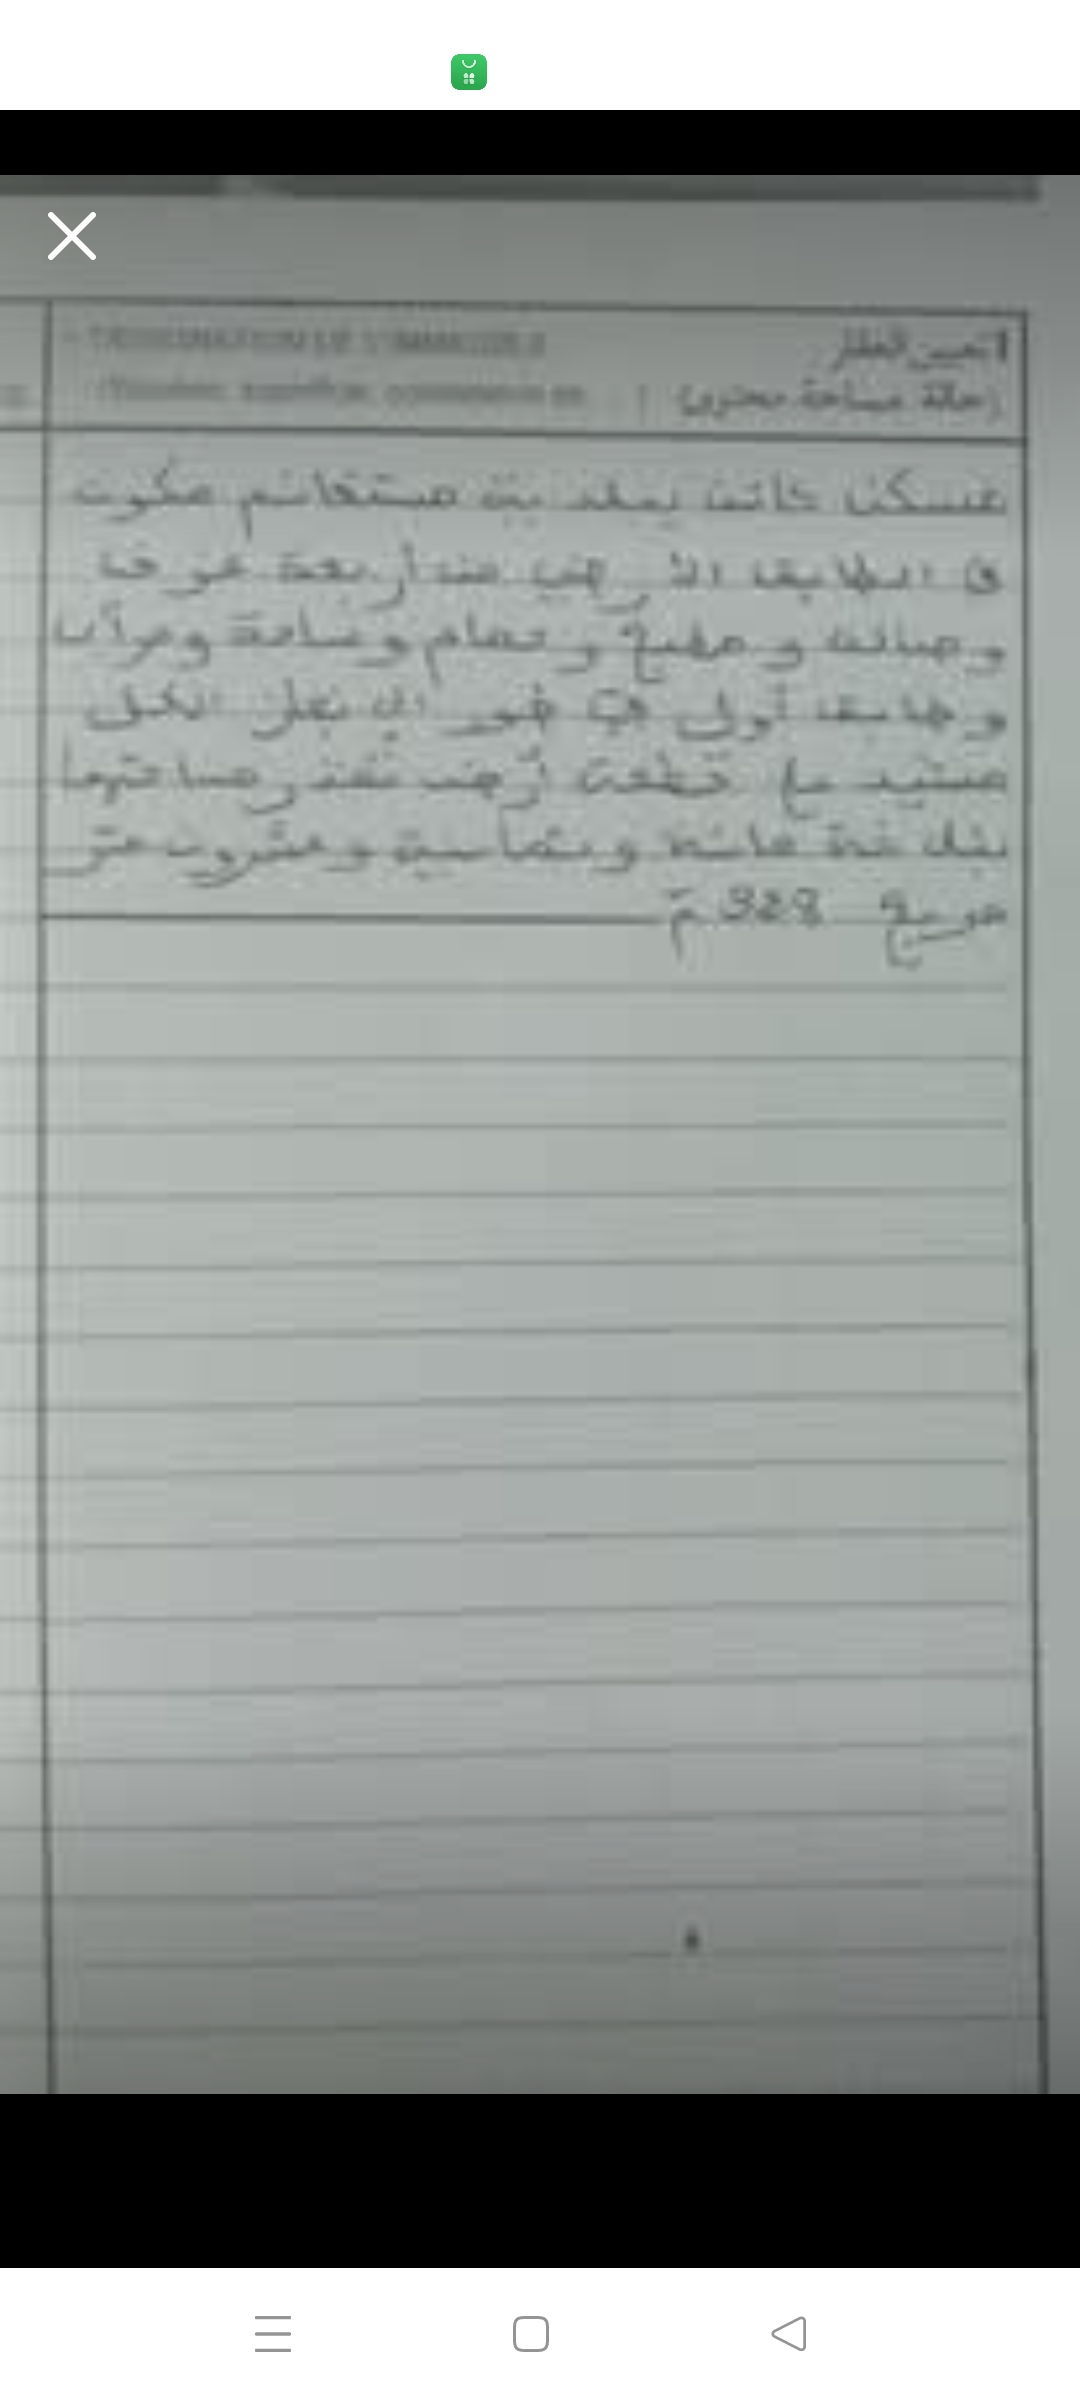 تعيين العقار
(حالة مساحة محتوى)
مسكن كائن ببلدية مستغانم مكون
في الطابق الأرضي من أربعة غرف
وصالة ومطبخ وحمام وساحة ومرآب
وطابق أول في طور الإنجاز الكل
مشيد مع قطعة أرض تقدر مساحتها
بثلاثمائة وثمانية وعشرون متر
مربع 328 م²